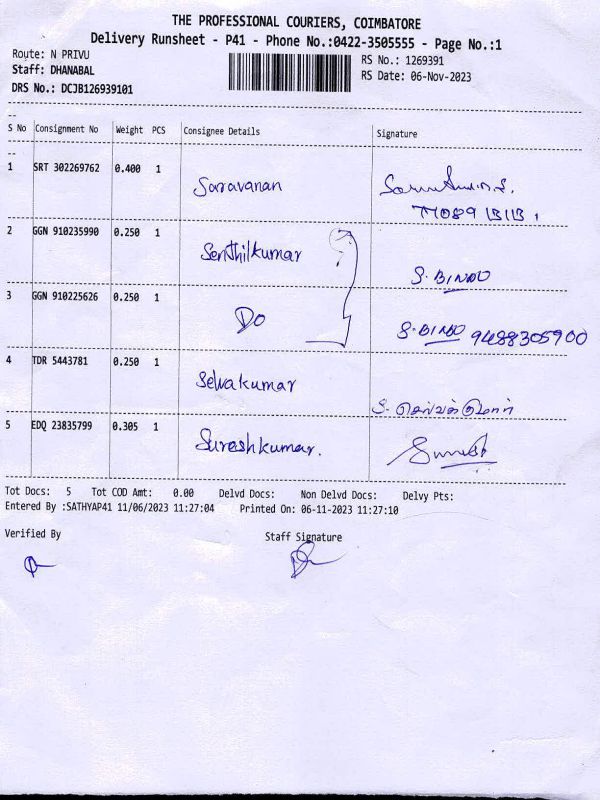 THE PROFESSIONAL COURIERS, COIMBATORE
Delivery Runsheet - P41 - Phone No.:0422-3505555 - Page No.:1
Route: N PRIVU
RS No.: 1269391
Staff: DHANABAL
RS Date: 06-Nov-2023
DRS No.: DCJB126939101
S No Consignment No Weight PCS Consignee Details Signature
1 SRT 302269762 0.400 1 Saravanan
2 GGN 910235990 0.250 1 Senthilkumar S. BINDU
3 GGN 910225626 0.250 1 DO S. BINDU 9488305900
4 TDR 5443781 0.250 1 Selvakumar
5 EDQ 23835799 0.305 1 Sureshkumar. Suresh
Tot Docs: 5 Tot COD Amt: 0.00 Delvd Docs: Non Delvd Docs: Delvy Pts:
Entered By :SATHYAP41 11/06/2023 11:27:04 Printed On: 06-11-2023 11:27:10
Verified By Staff Signature